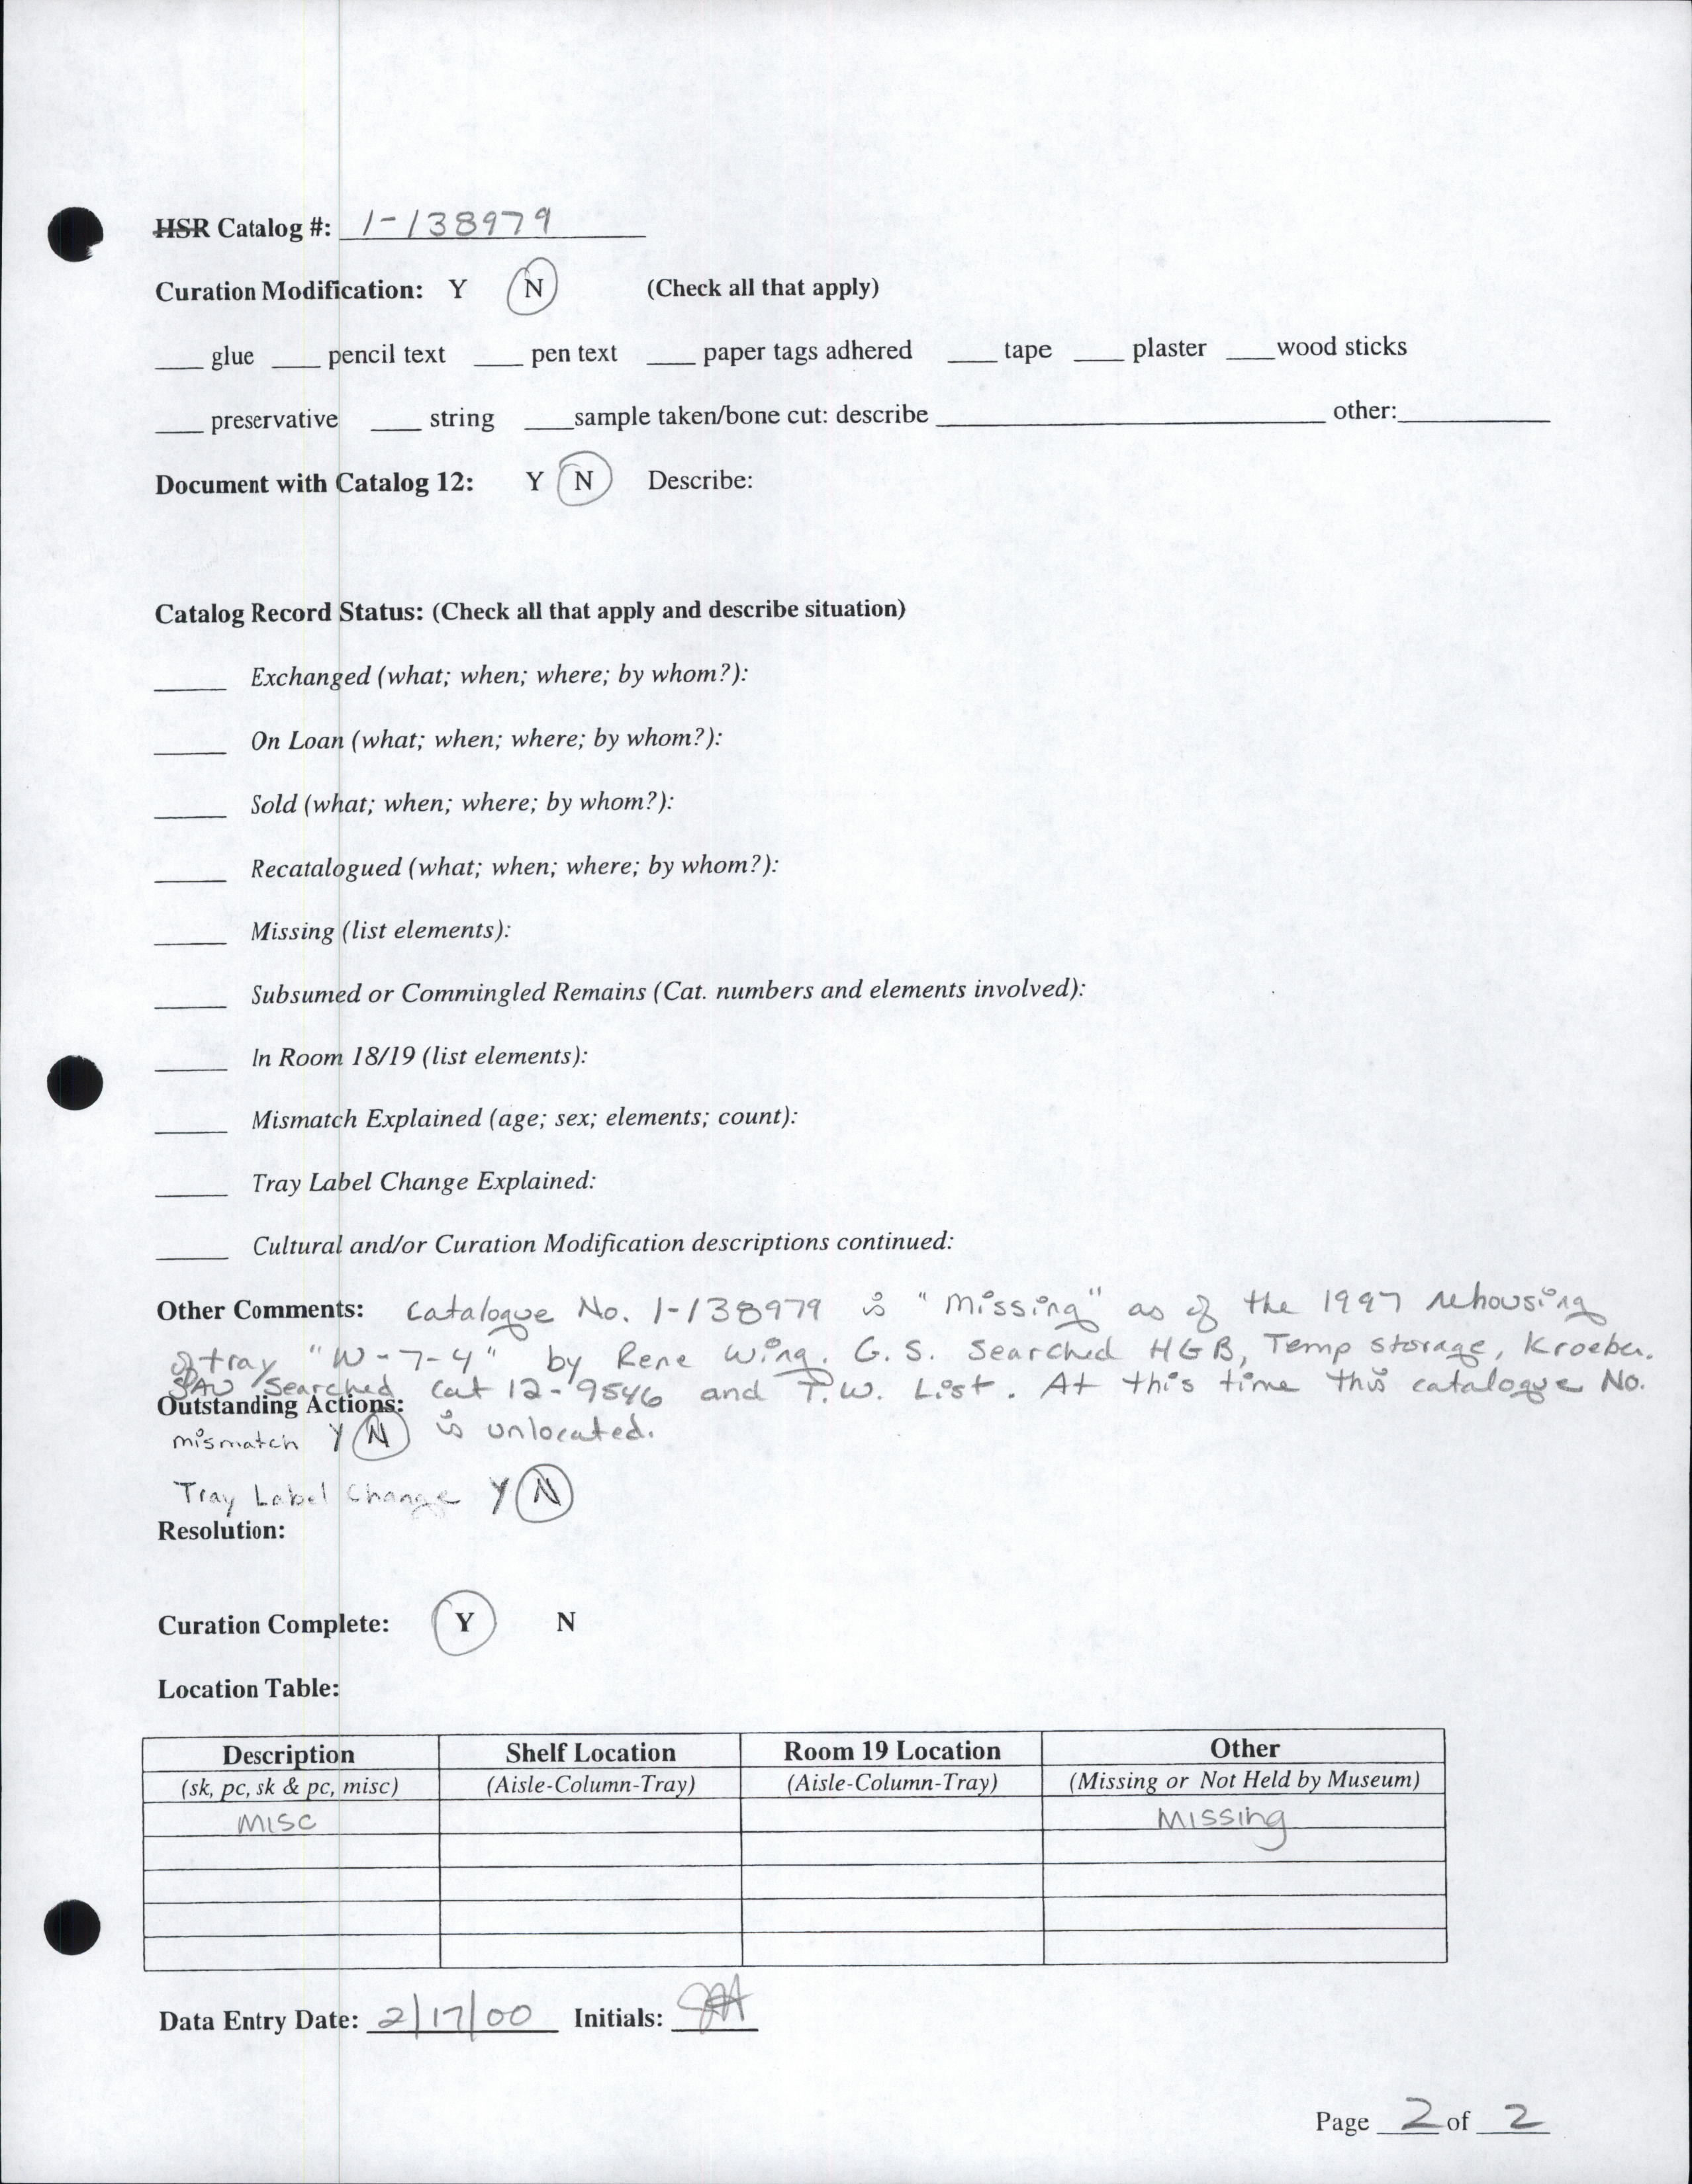 HSR Catalog #: 1-138979
Curation Modification: Y N (Check all that apply)
____ glue ____ pencil text ____ pen text ____ paper tags adhered ____ tape ____ plaster ____wood sticks
____ preservative ____ string ____sample taken/bone cut: describe ____ other:____
Document with Catalog 12: Y N Describe:
Catalog Record Status: (Check all that apply and describe situation)
_____ Exchanged (what; when; where; by whom?):
_____ On Loan (what; when; where; by whom?):
_____ Sold (what; when; where; by whom?):
_____ Recatalogued (what; when; where; by whom?):
_____ Missing (list elements):
_____ Subsumed or Commingled Remains (Cat. numbers and elements involved):
_____ In Room 18/19 (list elements):
_____ Mismatch Explained (age; sex; elements; count):
_____ Tray Label Change Explained:
_____ Cultural and/or Curation Modification descriptions continued:
Other Comments: Catalogue No. 1-138979 is "Missing" as of the 1997 rehousing
of tray "W-7-4" by Rene Wing. G.S. Searched HGB, Temp storage, Kroeber.
Searched Cat 12-9546 and T.W. List. At this time this catalogue No.
Outstanding Actions:
mismatch Y N is unlocated.
Tray Label Change Y N
Resolution:
Curation Complete: Y N
Location Table:
Description Shelf Location Room 19 Location Other
(sk, pc, sk & pc, misc) (Aisle-Column-Tray) (Aisle-Column-Tray) (Missing or Not Held by Museum)
MISC Missing
Data Entry Date: 2/17/00 Initials:
Page 2 of 2